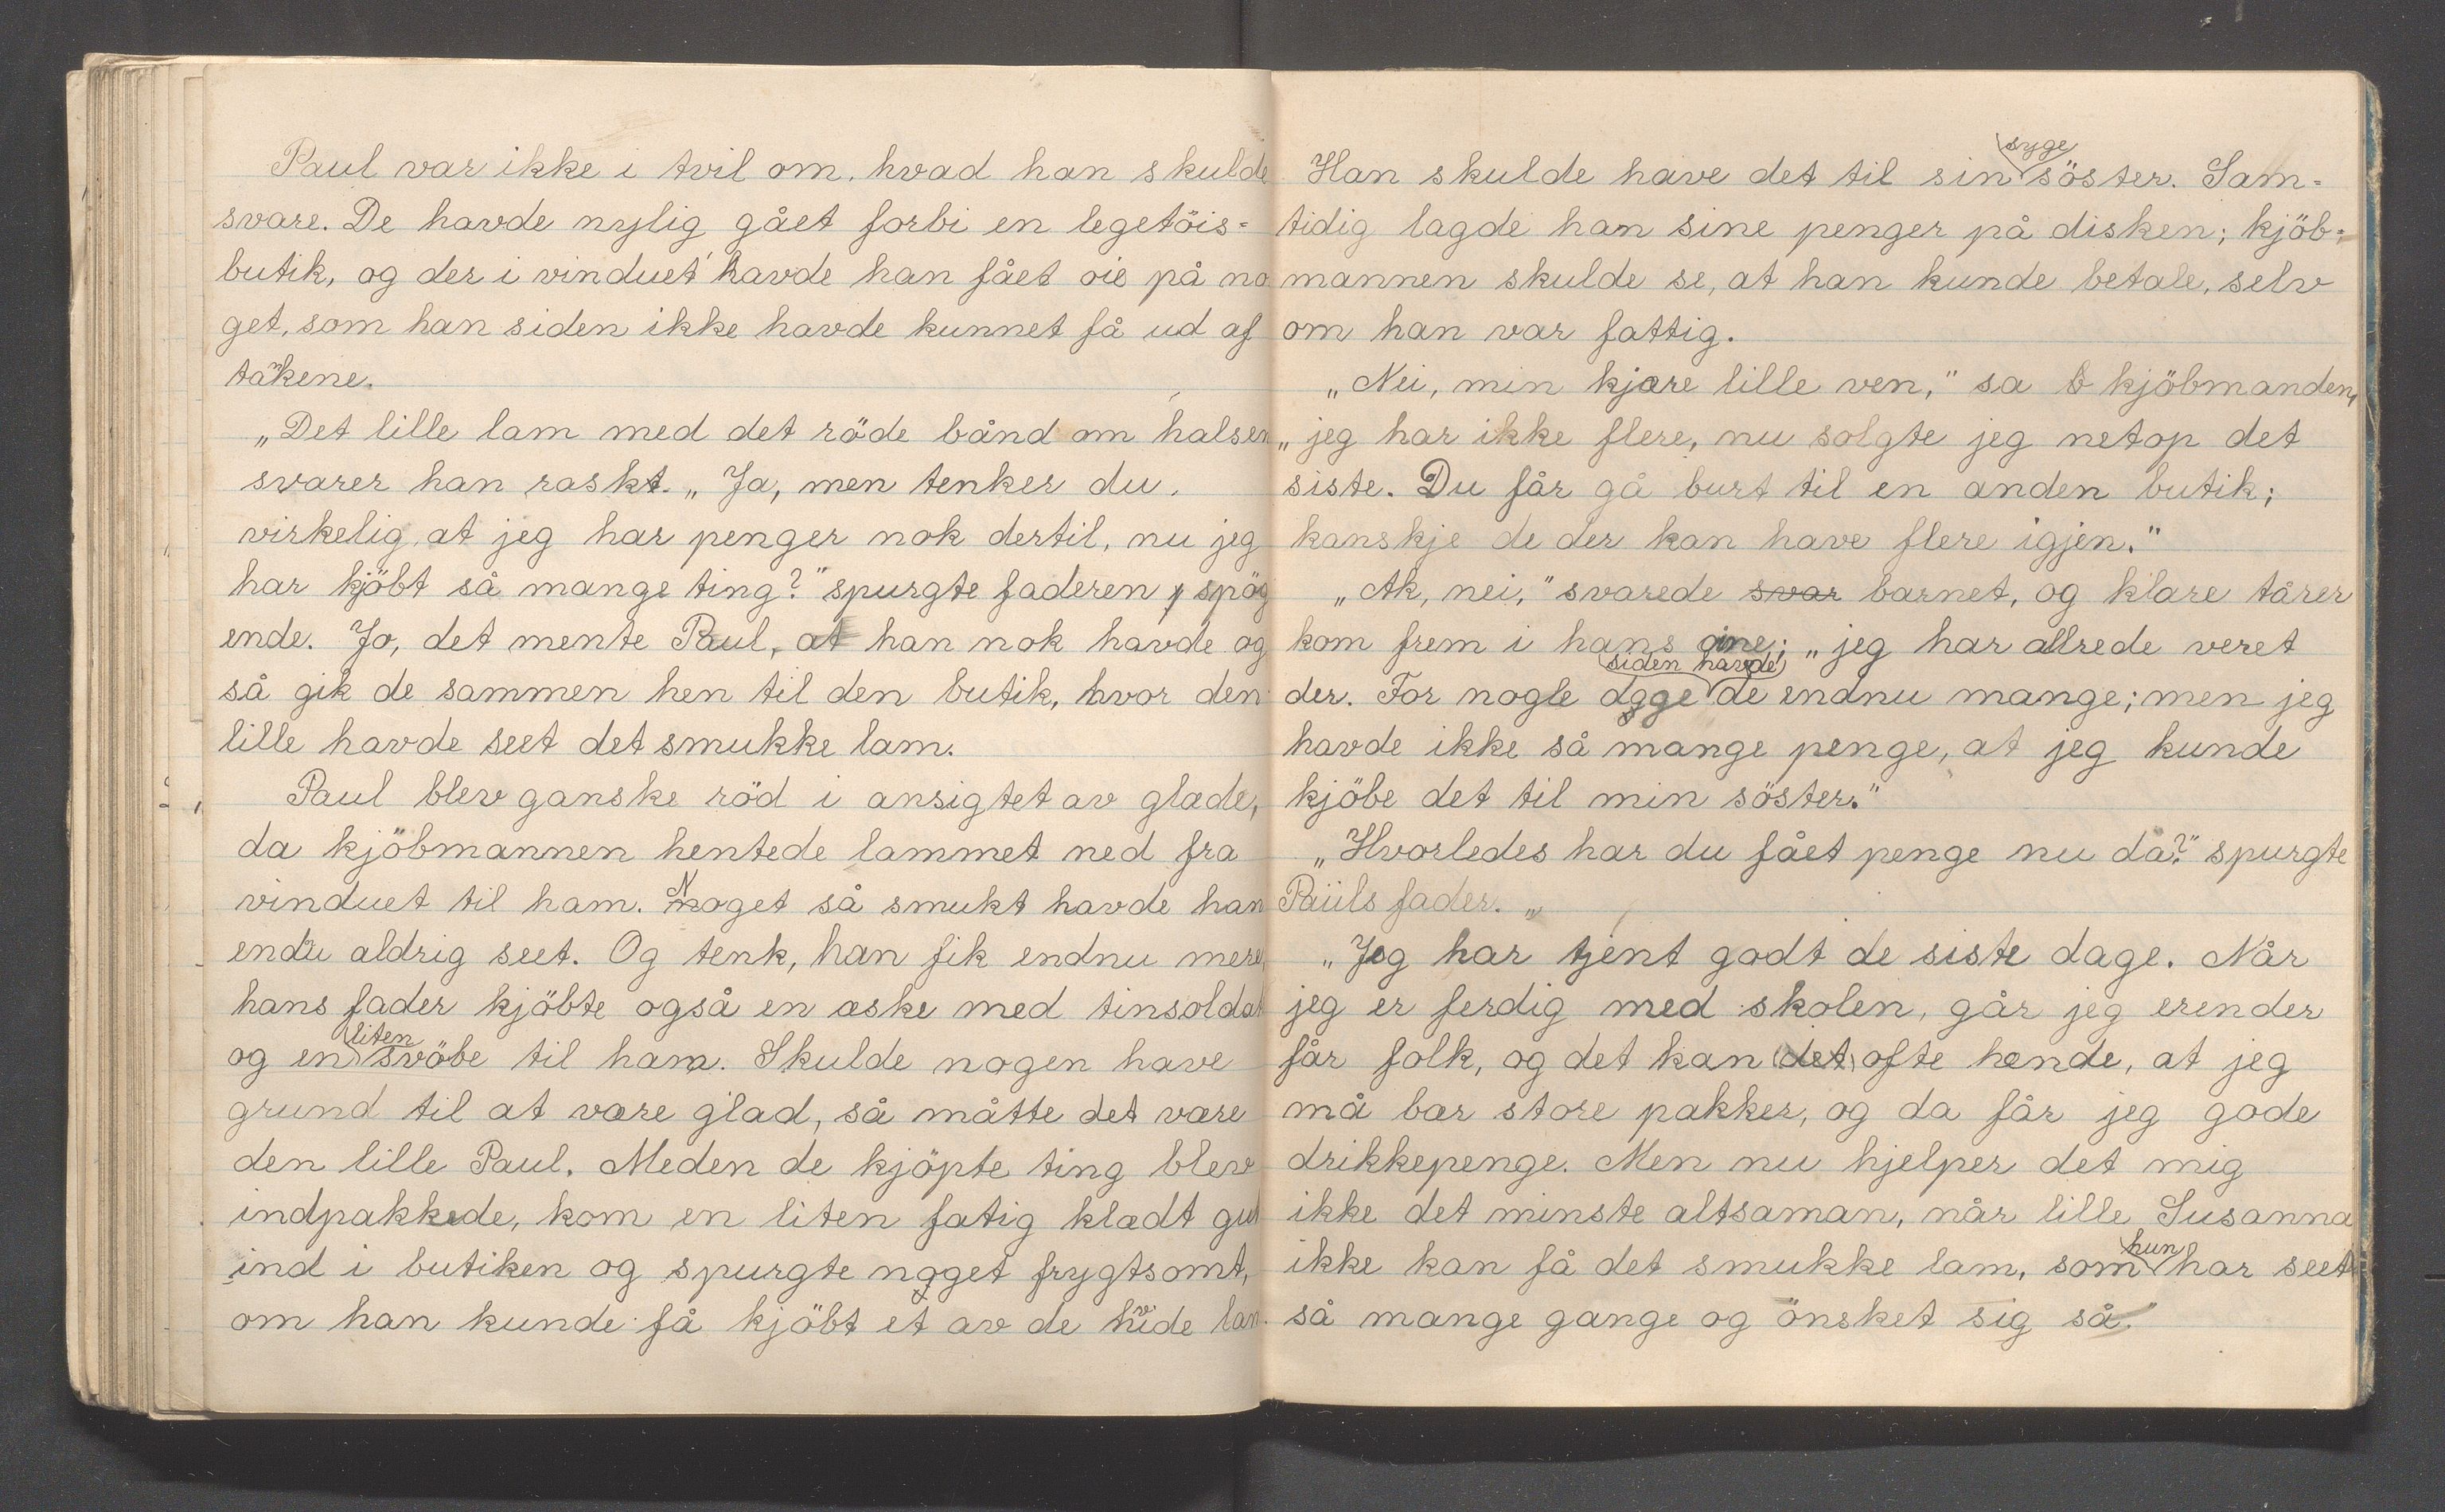 Paul var ikke i tvil om, hvad han skulde
svare. De havde nylig gået forbi en legetöis=
butik, og der i vinduet havde han fået öie på no
get, som han siden ikke havde kunnet få ud af
tåkene.
„Det lille lam med det röde bånd om halsen
svarer han raskt. „Ja, men tenker du.
virkelig, at jeg har penger nok dertil, nu jeg
har kjöbt så mange ting?" spurgte faderen spög
ende. Jo, det mente Paul, at han nok havde og
så gik de sammen hen til den butik, hvor den
lille havde seet det smukke lam.
Paul blev ganske röd i ansigtet av glæde,
da kjöbmannen hentede lammet ned fra
vinduet til ham. Noget så smukt havde han
endu aldrig seet. Og tenk, han fik endnu mere,
hans fader kjöbte også en æske med tinsoldat
og en liten svöbe til ham. Skulde nogen have
grund til at være glad, så måtte det være
den lille Paul. Meden de kjöpte ting blev
indpakkede, kom en liten fatig klædt gut
ind i butiken og spurgte noget frygtsomt,
om han kunde få kjöbt et av de hvide lam.
Han skulde have det til sin syge söster. Sam=
tidig lagde han sine penger på disken; kjöb=
mannen skulde se, at han kunde betale, selv
om han var fattig.
„Nei, min kjære lille ven," sa kjöbmanden,
„jeg har ikke flere, nu solgte jeg netop det
siste. Du får gå burt til en anden butik;
kanskje de der kan have flere igjen."
„Ak, nei," svarede svar barnet, og klare tårer
kom frem i hans öine; „jeg har allrede veret
der. For nogle dage siden havde de endnu mange; men jeg
havde ikke så mange penge, at jeg kunde
kjöbe det til min söster."
„Hvorledes har du fået penge nu da?" spurgte
Pauls fader. „
„Jeg har tjent godt de siste dage. Når
jeg er ferdig med skolen, går jeg erender
får folk, og det kan (det) ofte hænde, at jeg
må bær store pakker, og da får jeg gode
drikkepenge. Men nu hjelper det mig
ikke det minste altsaman, når lille Susanna
ikke kan få det smukke lam, som hun har seet
så mange gange og önsket sig så."